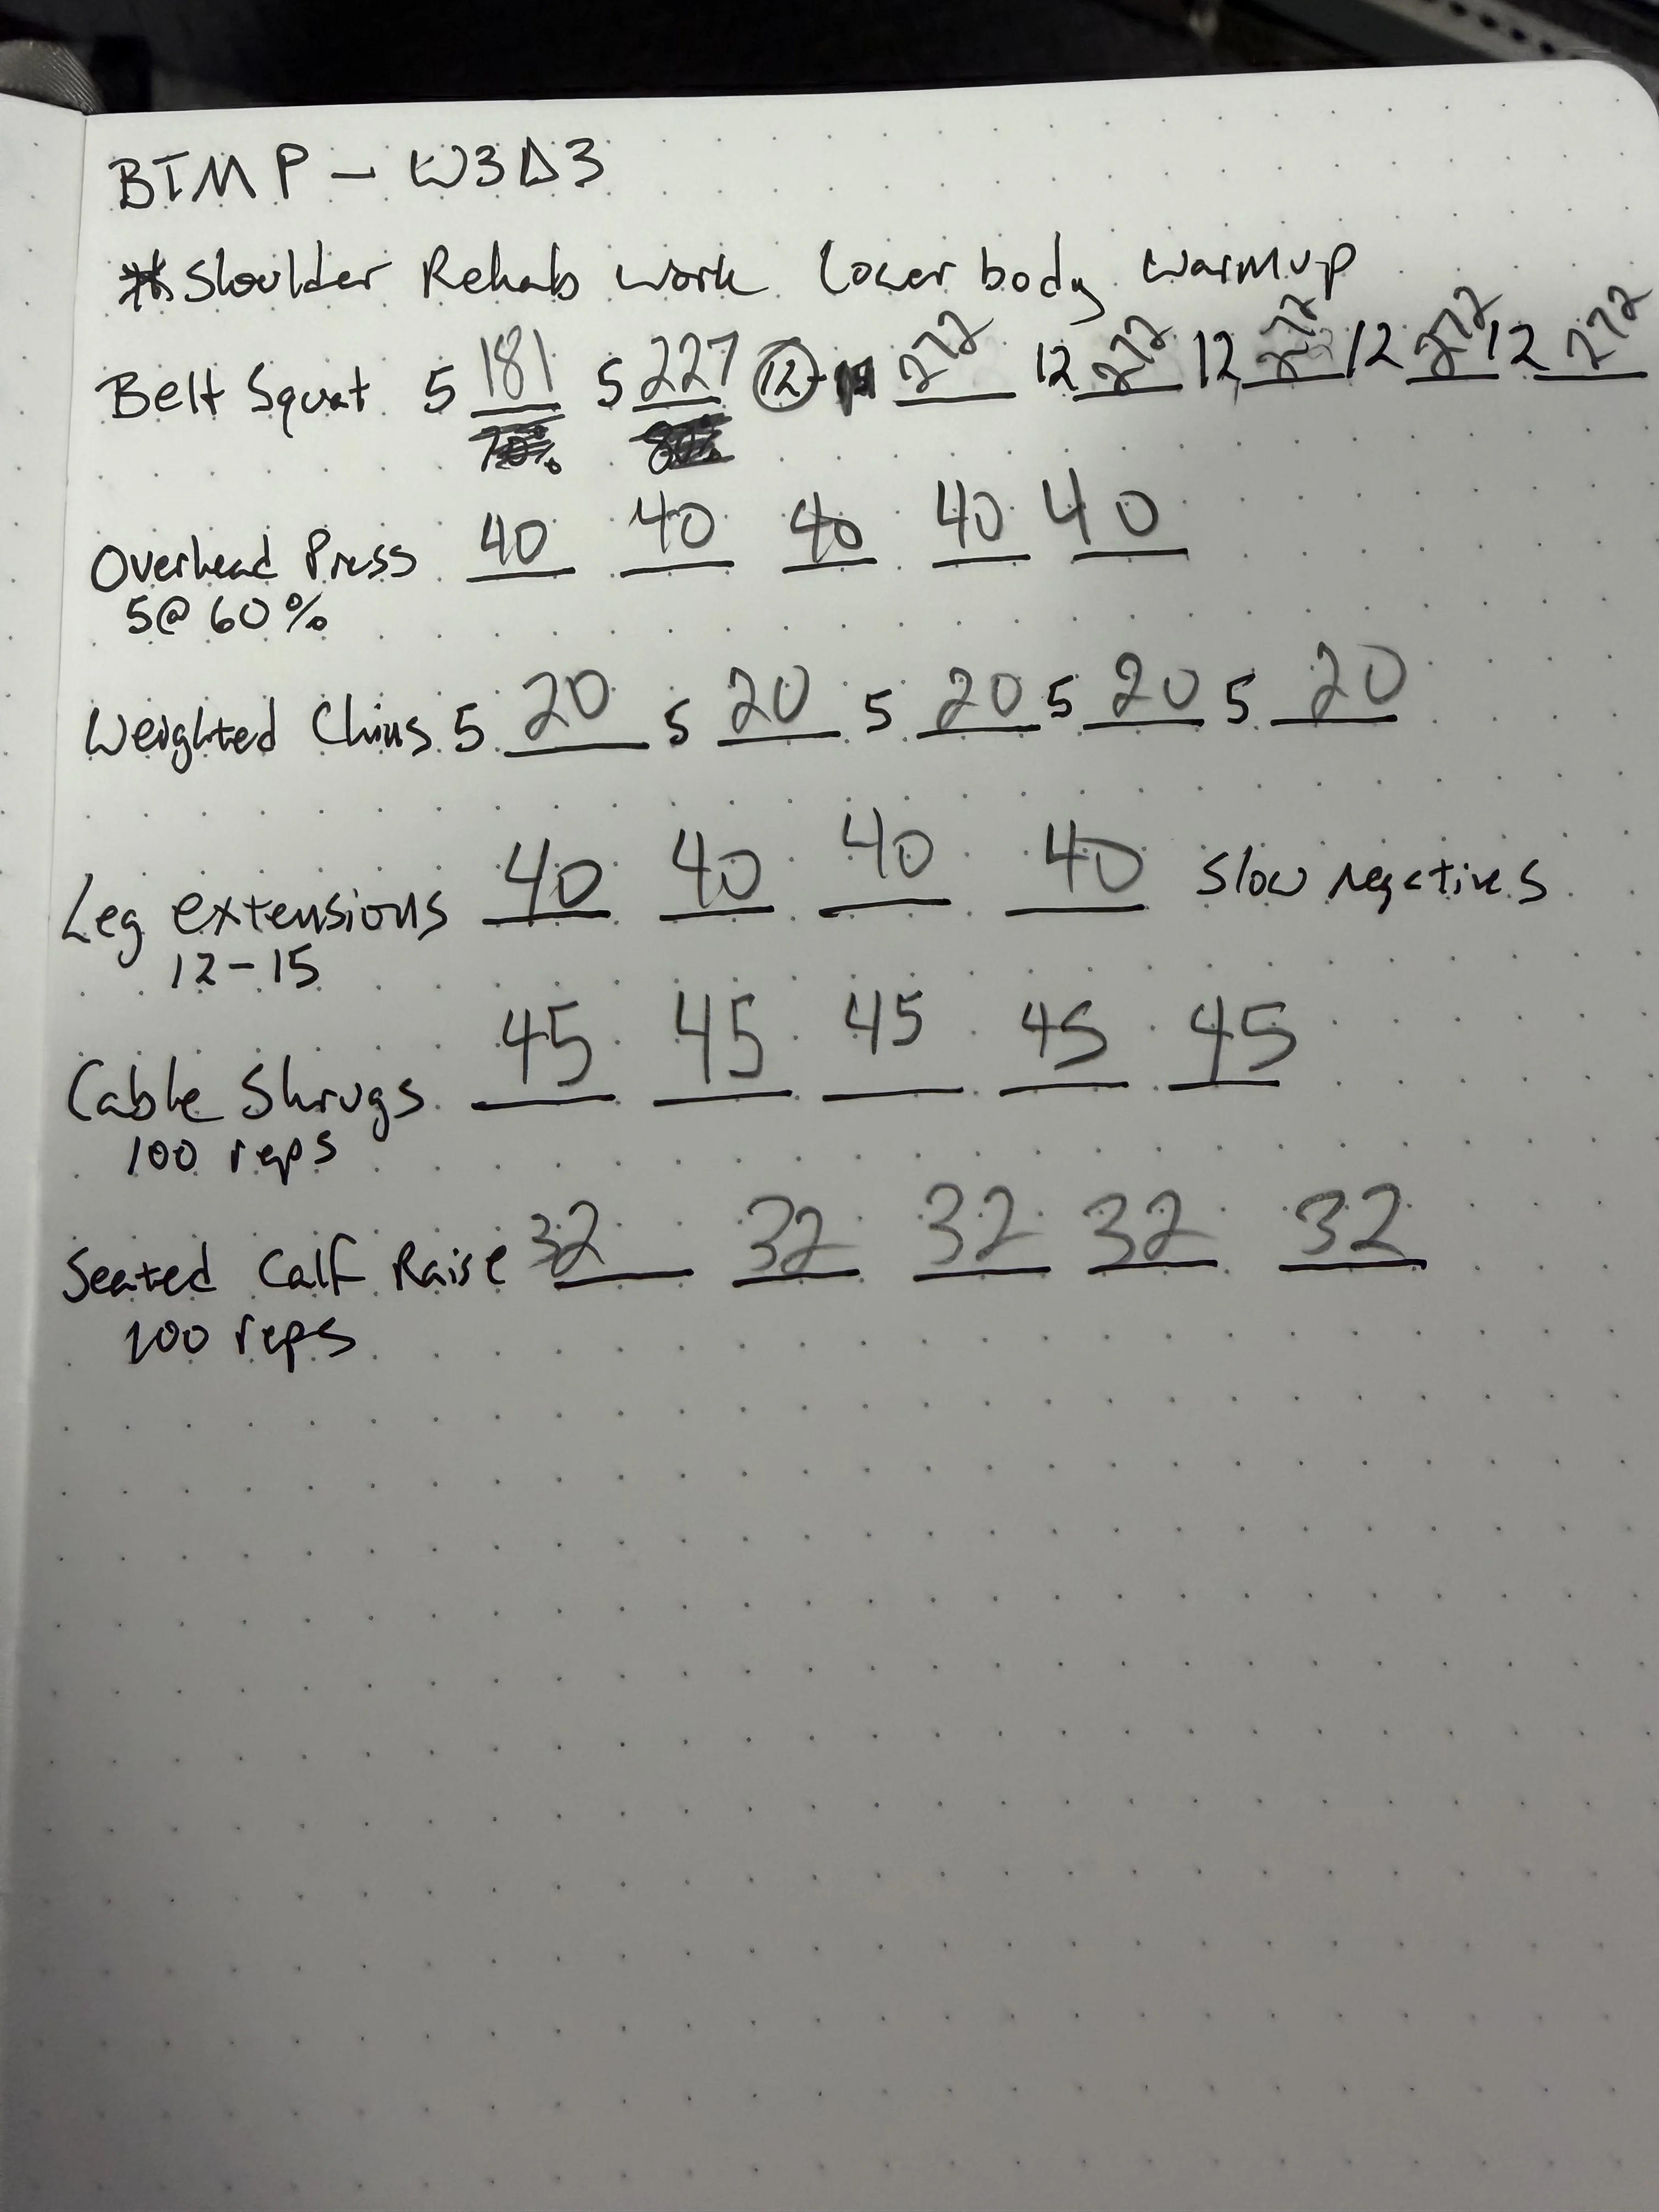 BTMP - W3D3
* Shoulder Rehab work lower body warmup
Belt Squat 5 181 5 227 12 272 12 272 12 272 12 272 12 272
Overhead Press 40 40 40 40 40
5@ 60%
Weighted Chins 5 20 5 20 5 20 5 20 5 20
Leg extensions 40 40 40 40 slow negatives
12-15
Cable Shrugs 45 45 45 45 45
100 reps
Seated Calf Raise 32 32 32 32 32
100 reps